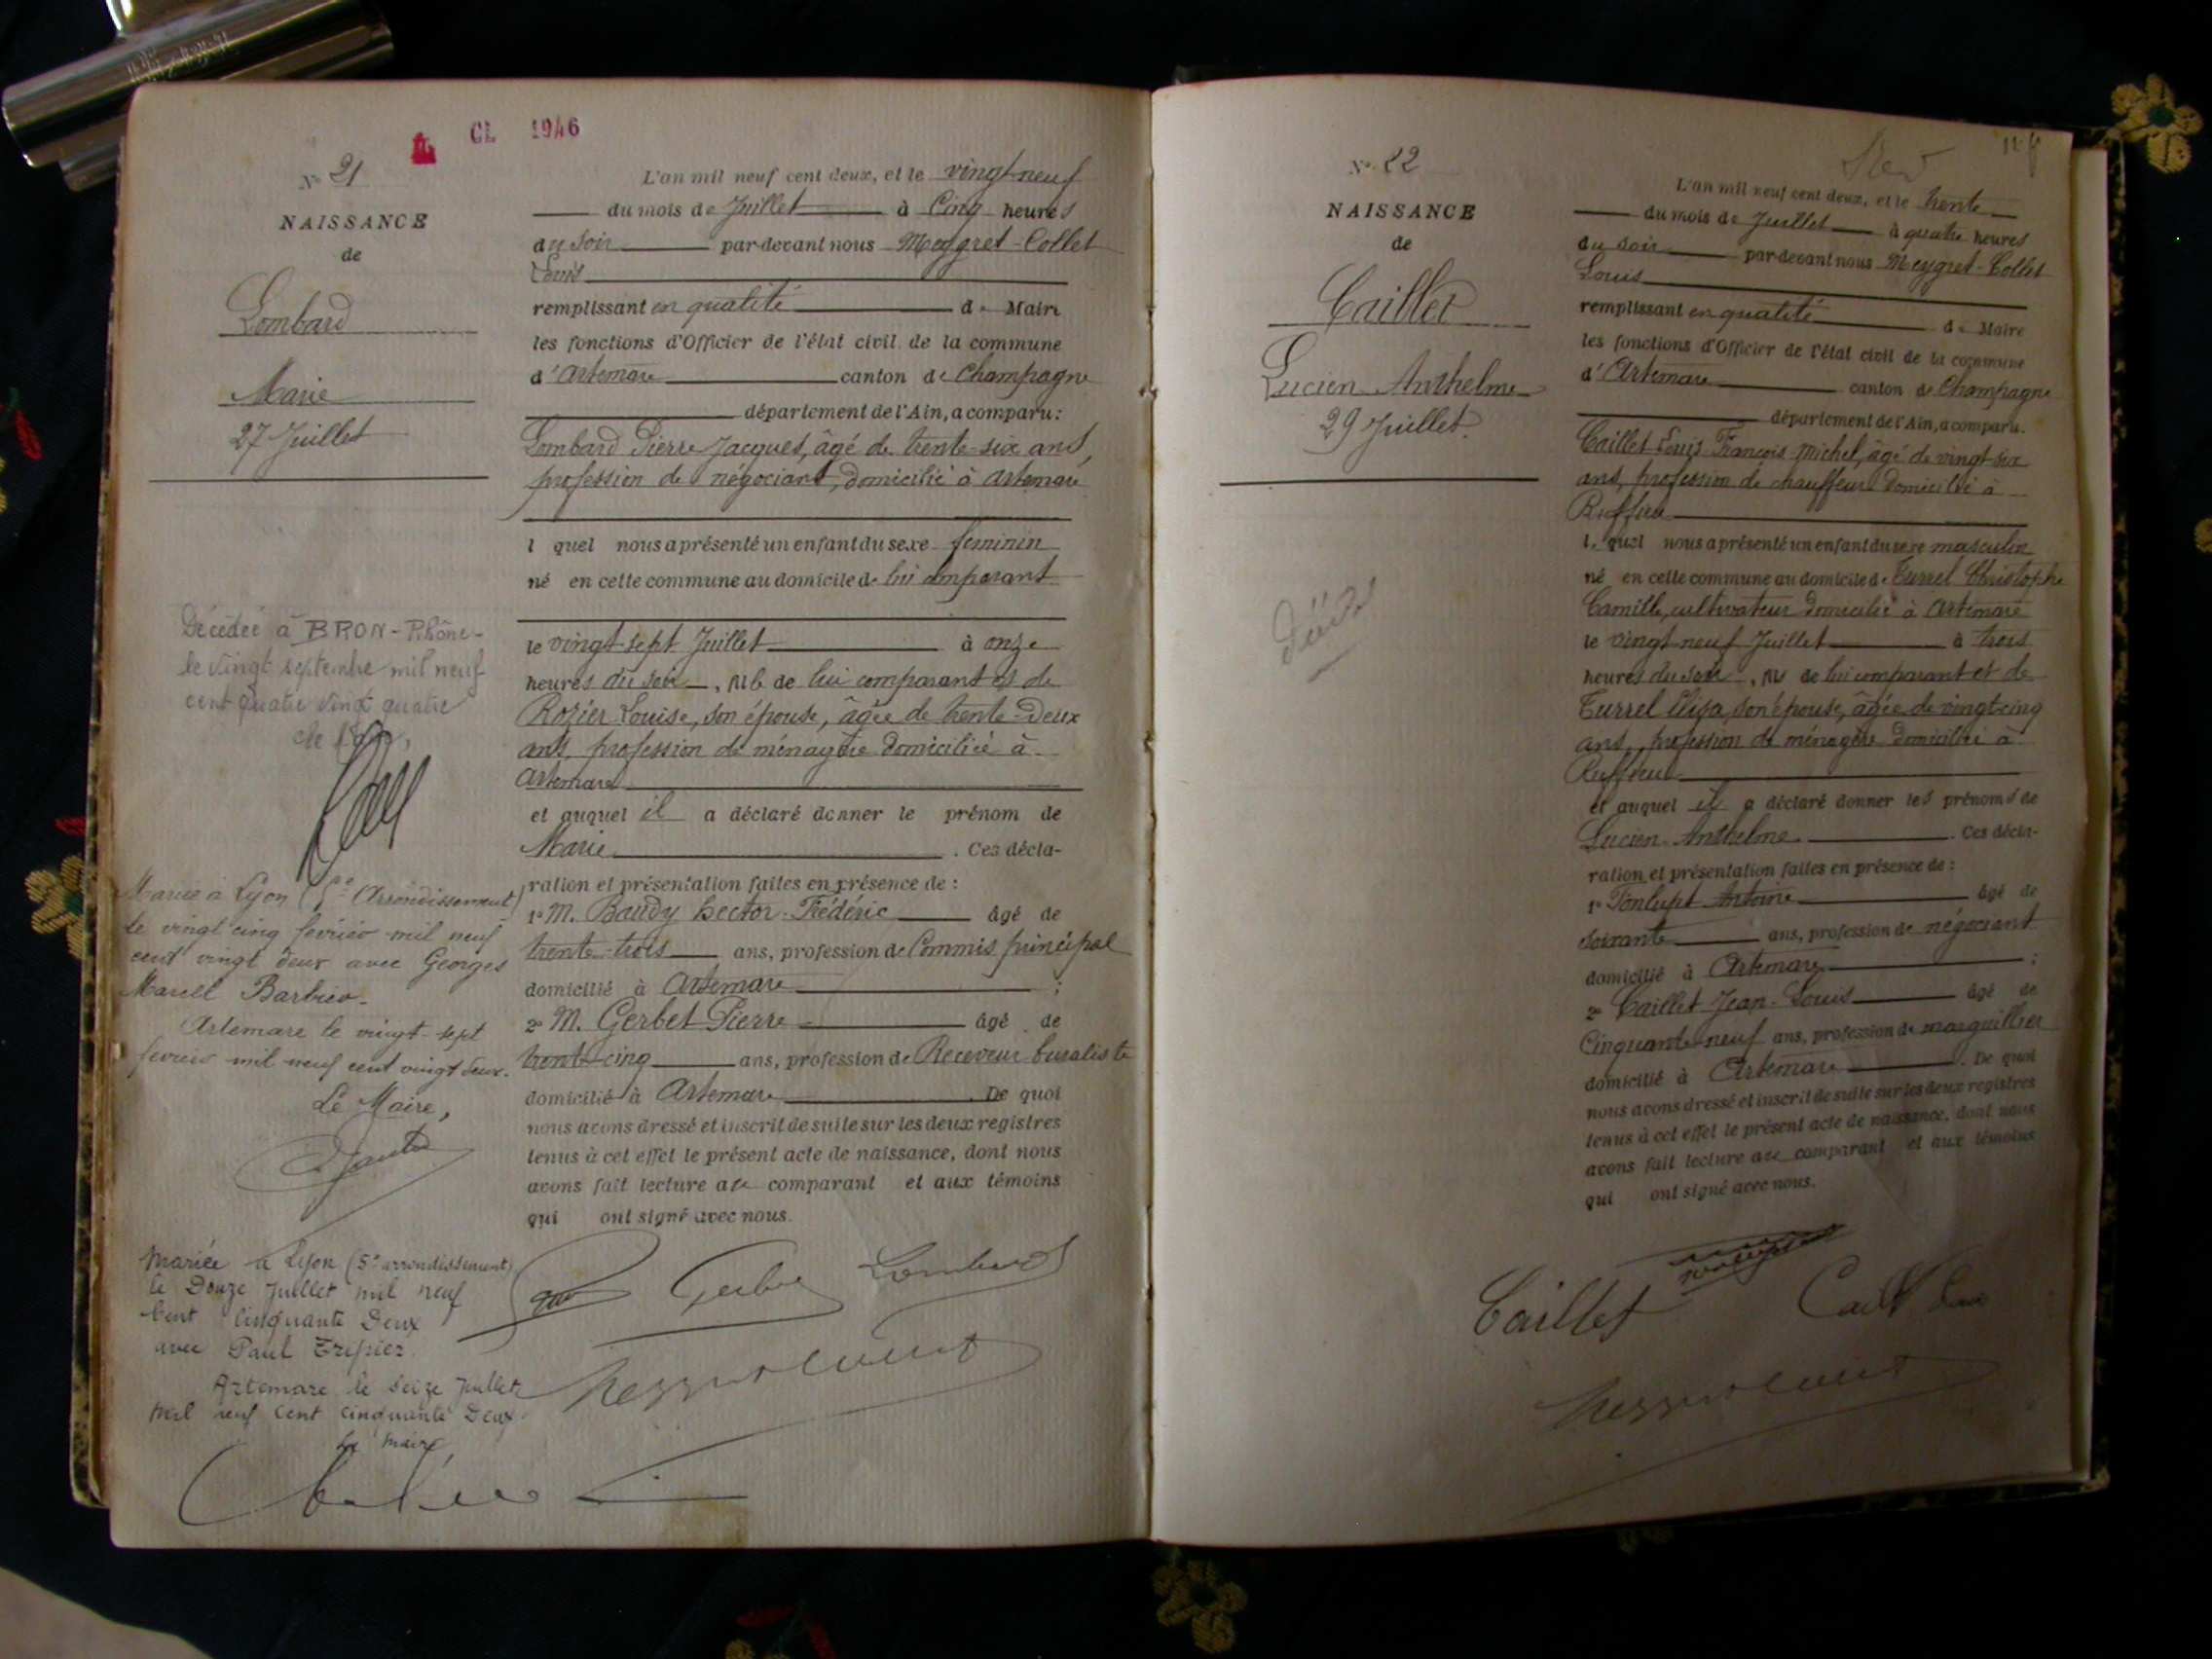 CL 1946
N° 21
NAISSANCE
de
Lombard
Marie
27 Juillet
Décédée à BRON - Rhône -
le vingt septembre mil neuf
cent quatre vingt quatre
Mariée à Lyon (Arrondissement)
le vingt cinq février mil neuf
cent vingt deux avec Georges
Marcel Barbier.
Artemare le vingt-sept
février mil neuf cent vingt deux.
Le Maire,
Mariée à Lyon (5e arrondissement)
le Douze Juillet mil neuf
Cent Cinquante Deux
avec Paul Tripier.
Artemare le Seize Juillet
mil neuf Cent Cinquante Deux
Le Maire,
L'an mil neuf cent deux, et le vingt neuf
du mois de Juillet à Cinq heures
du soir par-devant nous Meygret-Collet
Louis
remplissant en qualité de Maire
les fonctions d'Officier de l'état civil de la commune
d'Artemare canton de Champagne
département de l'Ain, a comparu:
Lombard Pierre Jacques, âgé de trente-six ans,
profession de négociant, domicilié à Artemare
l quel nous a présenté un enfant du sexe féminin
né en cette commune au domicile de lui comparant
le vingt-sept Juillet à onze
heures du soir, né de lui comparant et de
Rozier Louise, son épouse, âgée de trente-deux
ans, profession de ménagère domiciliée à
Artemare
et auquel il a déclaré donner le prénom de
Marie. Ces décla-
ration et présentation faites en présence de :
1° M. Baudy Hector-Frédéric âgé de
trente-trois ans, profession de Commis principal
domicilié à Artemare ;
2° M. Gerbet Pierre âgé de
trente-cinq ans, profession de Receveur buraliste
domicilié à Artemare. De quoi
nous avons dressé et inscrit de suite sur les deux registres
tenus à cet effet le présent acte de naissance, dont nous
avons fait lecture au comparant et aux témoins
qui ont signé avec nous.
Gerbet Lombard
N° 22
NAISSANCE
de
Caillet
Lucien Anthelme
29 Juillet.
L'an mil neuf cent deux, et le trente
du mois de Juillet à quatre heures
du soir par-devant nous Meygret-Collet
Louis
remplissant en qualité de Maire
les fonctions d'Officier de l'état civil de la commune
d'Artemare canton de Champagne
département de l'Ain, a comparu.
Caillet Louis François Michel, âgé de vingt-six
ans, profession de chauffeur domicilié à
Ruffieu
lequel nous a présenté un enfant du sexe masculin
né en cette commune au domicile de Turrel Christophe
Camille, cultivateur domicilié à Artemare
le vingt-neuf Juillet à trois
heures du soir, né de lui comparant et de
Turrel Elisa, son épouse, âgée de vingt-cinq
ans, profession de ménagère domiciliée à
Ruffieu
et auquel il a déclaré donner les prénoms de
Lucien-Anthelme. Ces décla-
ration et présentation faites en présence de :
1° Tonlupt Antoine âgé de
soixante ans, profession de négociant
domicilié à Artemare ;
2° Caillet Jean-Louis âgé de
Cinquante-neuf ans, profession de marguillier
domicilié à Artemare. De quoi
nous avons dressé et inscrit de suite sur les deux registres
tenus à cet effet le présent acte de naissance, dont nous
avons fait lecture au comparant et aux témoins
qui ont signé avec nous.
Caillet